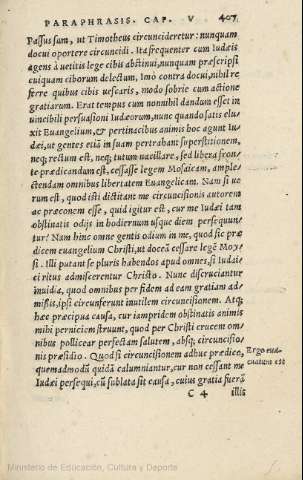 PARAPHRASIS. CAP. V 407
Passus sum, ut Timotheus circuncideretur: nunquam
docui oportere circuncidi. Ita frequenter cum Iudæis
agens à uetitis lege cibis abstinui, nunquam præscripsi
cuiquam ciborum delectum. Imò contrà docui, nihil re
ferre quibus cibis uescaris, modò sobrie cum actione
gratiarum. Erat tempus cum nonnihil dandum esset in
uincibili persuasioni Iudæorum, nunc quando satis elu-
xit Euangelium, & pertinacibus animis hoc agunt Iu-
dæi, ut gentes etiã in suam pertrahant superstitionem,
neq; rectum est, neq; tutum uacillare, sed libera fron-
te prædicandum est, cessasse legem Mosaicam, ample-
ctendam omnibus libertatem Euangelicam. Nam si ue
rum est, quod isti dictitant me circuncisionis autorem
ac præconem esse, quid igitur est, cur me Iudæi tam
obstinatis odijs in hodiernum usque diem persequun-
tur? Nam hinc omne gentis odium in me, quod sic præ
dicem euangelium Christi, ut doceã cessare legẽ Moy
si. Illi putant se pluris habendos apud omnes, si Iudai-
ci ritus admiscerentur Christo. Nunc discruciantur
inuidia, quod omnibus per fidem ad eam gratiam ad-
missis, ipsi circunferunt inutilem circuncisionem. Atq;
hæc præcipua causa, cur iampridem obstinatis animis
mihi perniciem struunt, quod per Christi crucem om-
nibus pollicear perfectam salutem, absq; circuncisio-
nis præsidio. Quod si circuncisionem adhuc prædico,
Ergo eua-
cuatum est
quemadmodũ quidã calumniantur, cur non cessant me
Iudæi persequi, cũ sublata sit causa, cuius gratia fuerã
C 4 illis
Ministerio de Educación, Cultura y Deporte